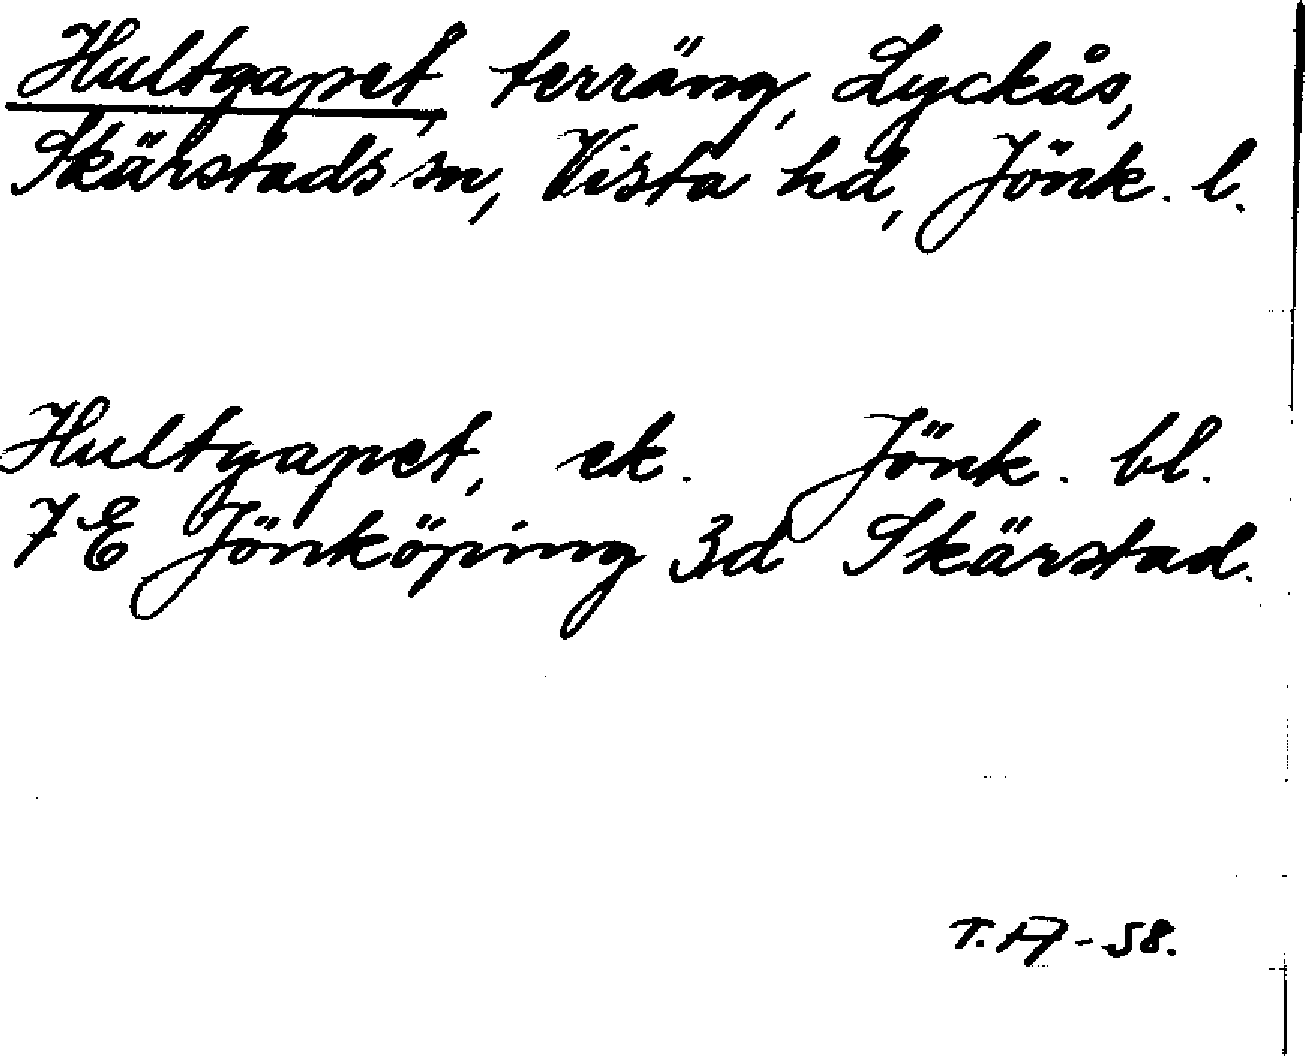 Hultgapet, terräng, Lyckås,
Skärstads sn, Vista hd, Jönk. l.
Hultgapet, ek. Jönk. bl.
7E Jönköping 3d Skärstad.
T.A-58.